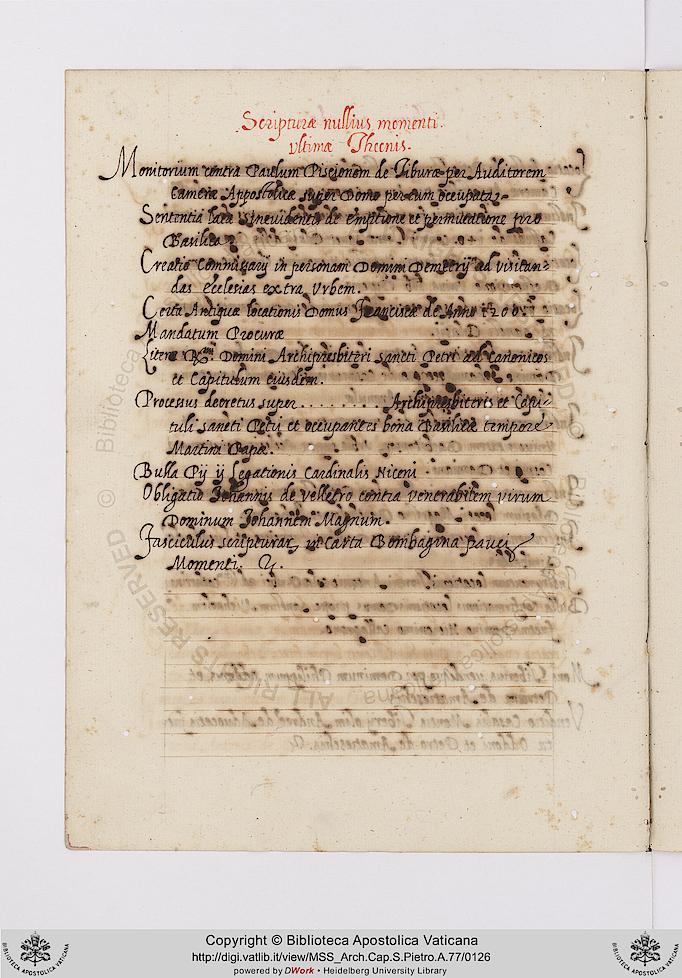 Scripturæ nullius momenti.
vltimæ Thecnis.
Monitorium contra Paulum Piscionem de Tiburæ per Auditorem
Cameræ Appostolicæ super Domo per eum occupata,
Sententia lata in evidentis de emptione et permutatione pro
Basilica
Creatio Commissarij in personam Domini Demetrij ad visitan-
das Ecclesias extra Vrbem.
Certa Antiquæ locationis Domus Franciscæ de Anno 1200
Mandatum Procuræ
Literæ R.mi Domini Archipresbiteri sancti Petri ad Canonicos
et Capitulum eiusdem.
Processus decretus super . . . . . . . . Archipresbiteris et Capi-
tuli sancti Petri et occupantes bona Basilicæ tempore
Martini Papæ.
Bulla Pij ij Legationis Cardinalis Niceni
Obligatio Johannis de velletro contra venerabilem virum
Dominum Johannem Magnum.
Fasciculus scripturar, in Carta Bombagina pauci
Momenti.
Copyright © Biblioteca Apostolica Vaticana
http://digi.vatlib.it/view/MSS_Arch.Cap.S.Pietro.A.77/0126
powered by DWork • Heidelberg University Library